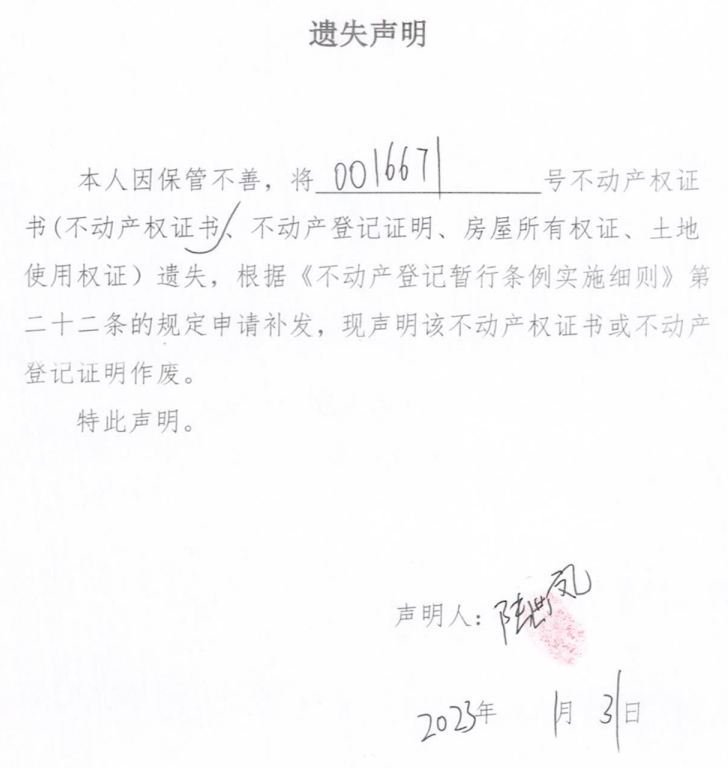 遗失声明
本人因保管不善，将0016671号不动产权证
书(不动产权证书、不动产登记证明、房屋所有权证、土地
使用权证）遗失，根据《不动产登记暂行条例实施细则》第
二十二条的规定申请补发，现声明该不动产权证书或不动产
登记证明作废。
特此声明。
声明人：陆世凤
2023年 1月 31日